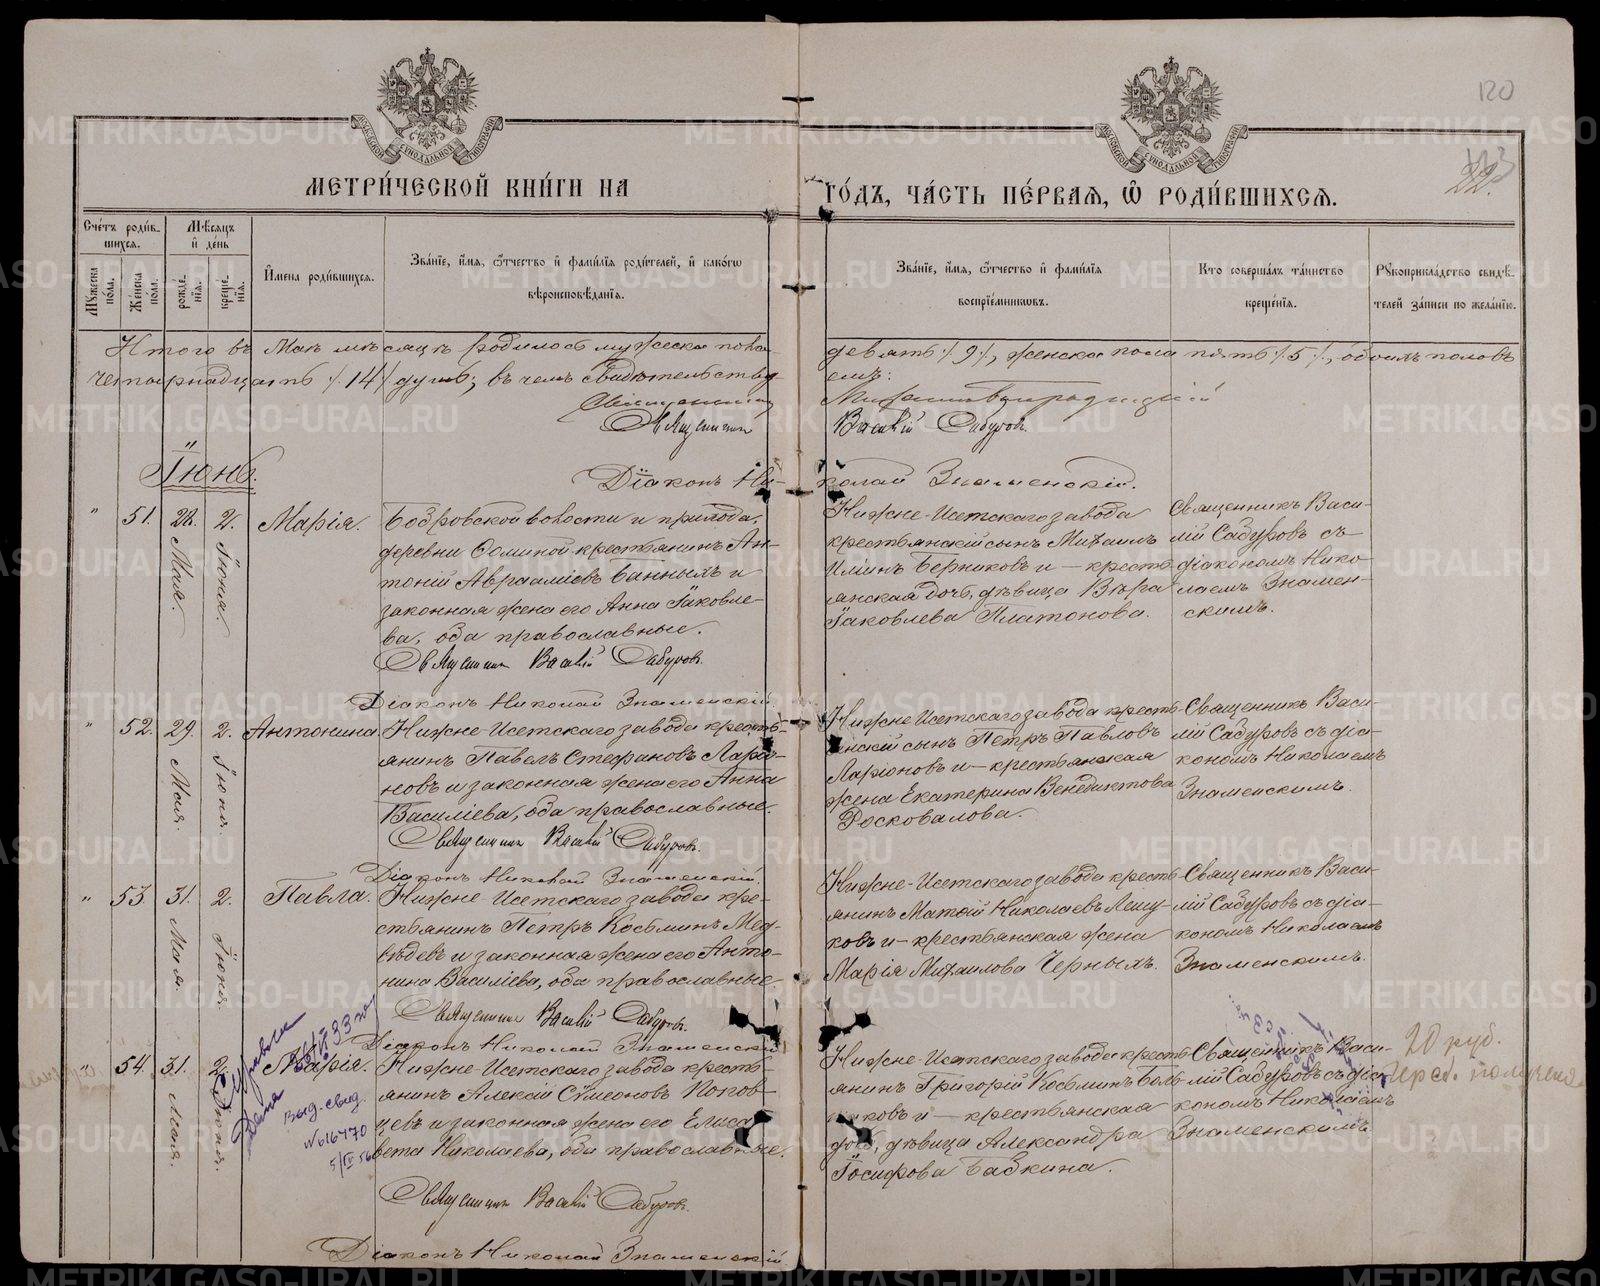 120
22.
МЕТРИ́ЧЕСКОЙ КНИ́ГИ НА ГО́ДЪ, ЧА́СТЬ ПЕ́РВАЯ, Ѽ РОДИ́ВШИХСЯ.
Сче́тъ роди́в-
шихся.
Мѣ́сяцъ
и҆ де́нь
Мꙋ́жеска по́ла.
Же́нска по́ла.
рожде́-
нїя.
креще́-
нїя.
И҆мена роди́вшихся.
Зва́нїе, и҆́мя, ѻ҆́тчество и҆ фами́лїя роди́телей, и҆ како́гѡ
вѣроисповѣ́данїя.
Зва́нїе, и҆́мя, ѻ҆́тчество и҆ фами́лїя
воспрїе́мникѡвъ.
Кто̀ соверша́лъ та́инство
креще́нїя.
Рꙋкоприкла́дство свидѣ́-
телей за́писи по жела́нїю.
Итого въ Маѣ мѣсяцѣ родилось мужеска пола девять /9/, женска пола пять /5/, обоихъ половъ
четырнадцать /14/ душъ; въ чемъ свидѣтельствуемъ:
Священникъ
Священникъ Василій Сабуровъ.
Іюнь.
Діаконъ Николай Знаменскій.
" 51. 28. Мая. 2. Іюня. Марія.
Бобровской волости и прихода,
деревни Фоминой крестьянинъ Ан-
тоній Авраамiевъ Банныхъ и
законная жена его Анна Іаковле-
ва, оба православные.
Священникъ Василій Сабуровъ.
Діаконъ Николай Знаменскій.
Нижне-Исетскаго завода
крестьянскій сынъ Михаилъ
Иліинъ Берниковъ и – кресть-
янская дочь, дѣвица Вѣра
Іаковлева Платонова.
Священникъ Васи-
лій Сабуровъ съ
діакономъ Нико-
лаемъ Знамен-
скимъ.
" 52. 29. Мая. 2. Іюня. Антонина
Нижне-Исетскаго завода кресть-
янинъ Павелъ Стефановъ Ларіо-
новъ и законная жена его Анна
Василіева, оба православные.
Священникъ Василій Сабуровъ.
Діаконъ Николай Знаменскій.
Нижне-Исетскаго завода кресть-
янскій сынъ Петръ Павловъ
Ларіоновъ и – крестьянская
жена Екатерина Венедиктова
Росковалова.
Священникъ Васи-
лій Сабуровъ съ діа-
кономъ Николаемъ
Знаменскимъ.
" 53. 31. Мая. 2. Іюня. Павла.
Нижне-Исетскаго завода кре-
стьянинъ Петръ Косьминъ Мед-
вѣдевъ и законная жена его Анто-
нина Василіева, оба православные.
Священникъ Василій Сабуровъ.
Діаконъ Николай Знаменскій
Нижне-Исетскаго завода кресть-
янинъ Матѳій Николаевъ Лешу-
ковъ и – крестьянская жена
Марія Михаилова Черныхъ.
Священникъ Васи-
лій Сабуровъ съ діа-
кономъ Николаемъ
Знаменскимъ.
" 54. 31. Мая. 2. Іюня. Марія.
Выд. свид.
№616470
5/IV 56
Нижне-Исетскаго завода кресть-
янинъ Алексій Сѵмеоновъ Попов-
цевъ и законная жена его Елиса-
вета Николаева, оба православные.
Священникъ Василій Сабуровъ.
Діаконъ Николай Знаменскій
Нижне-Исетскаго завода кресть-
янинъ Григорій Косьминъ Боль-
шковъ и – крестьянская
дочь, дѣвица Александра
Іосифова Бабкина.
Священникъ Васи-
лій Сабуровъ съ діа-
кономъ Николаемъ
Знаменскимъ.
20 руб.